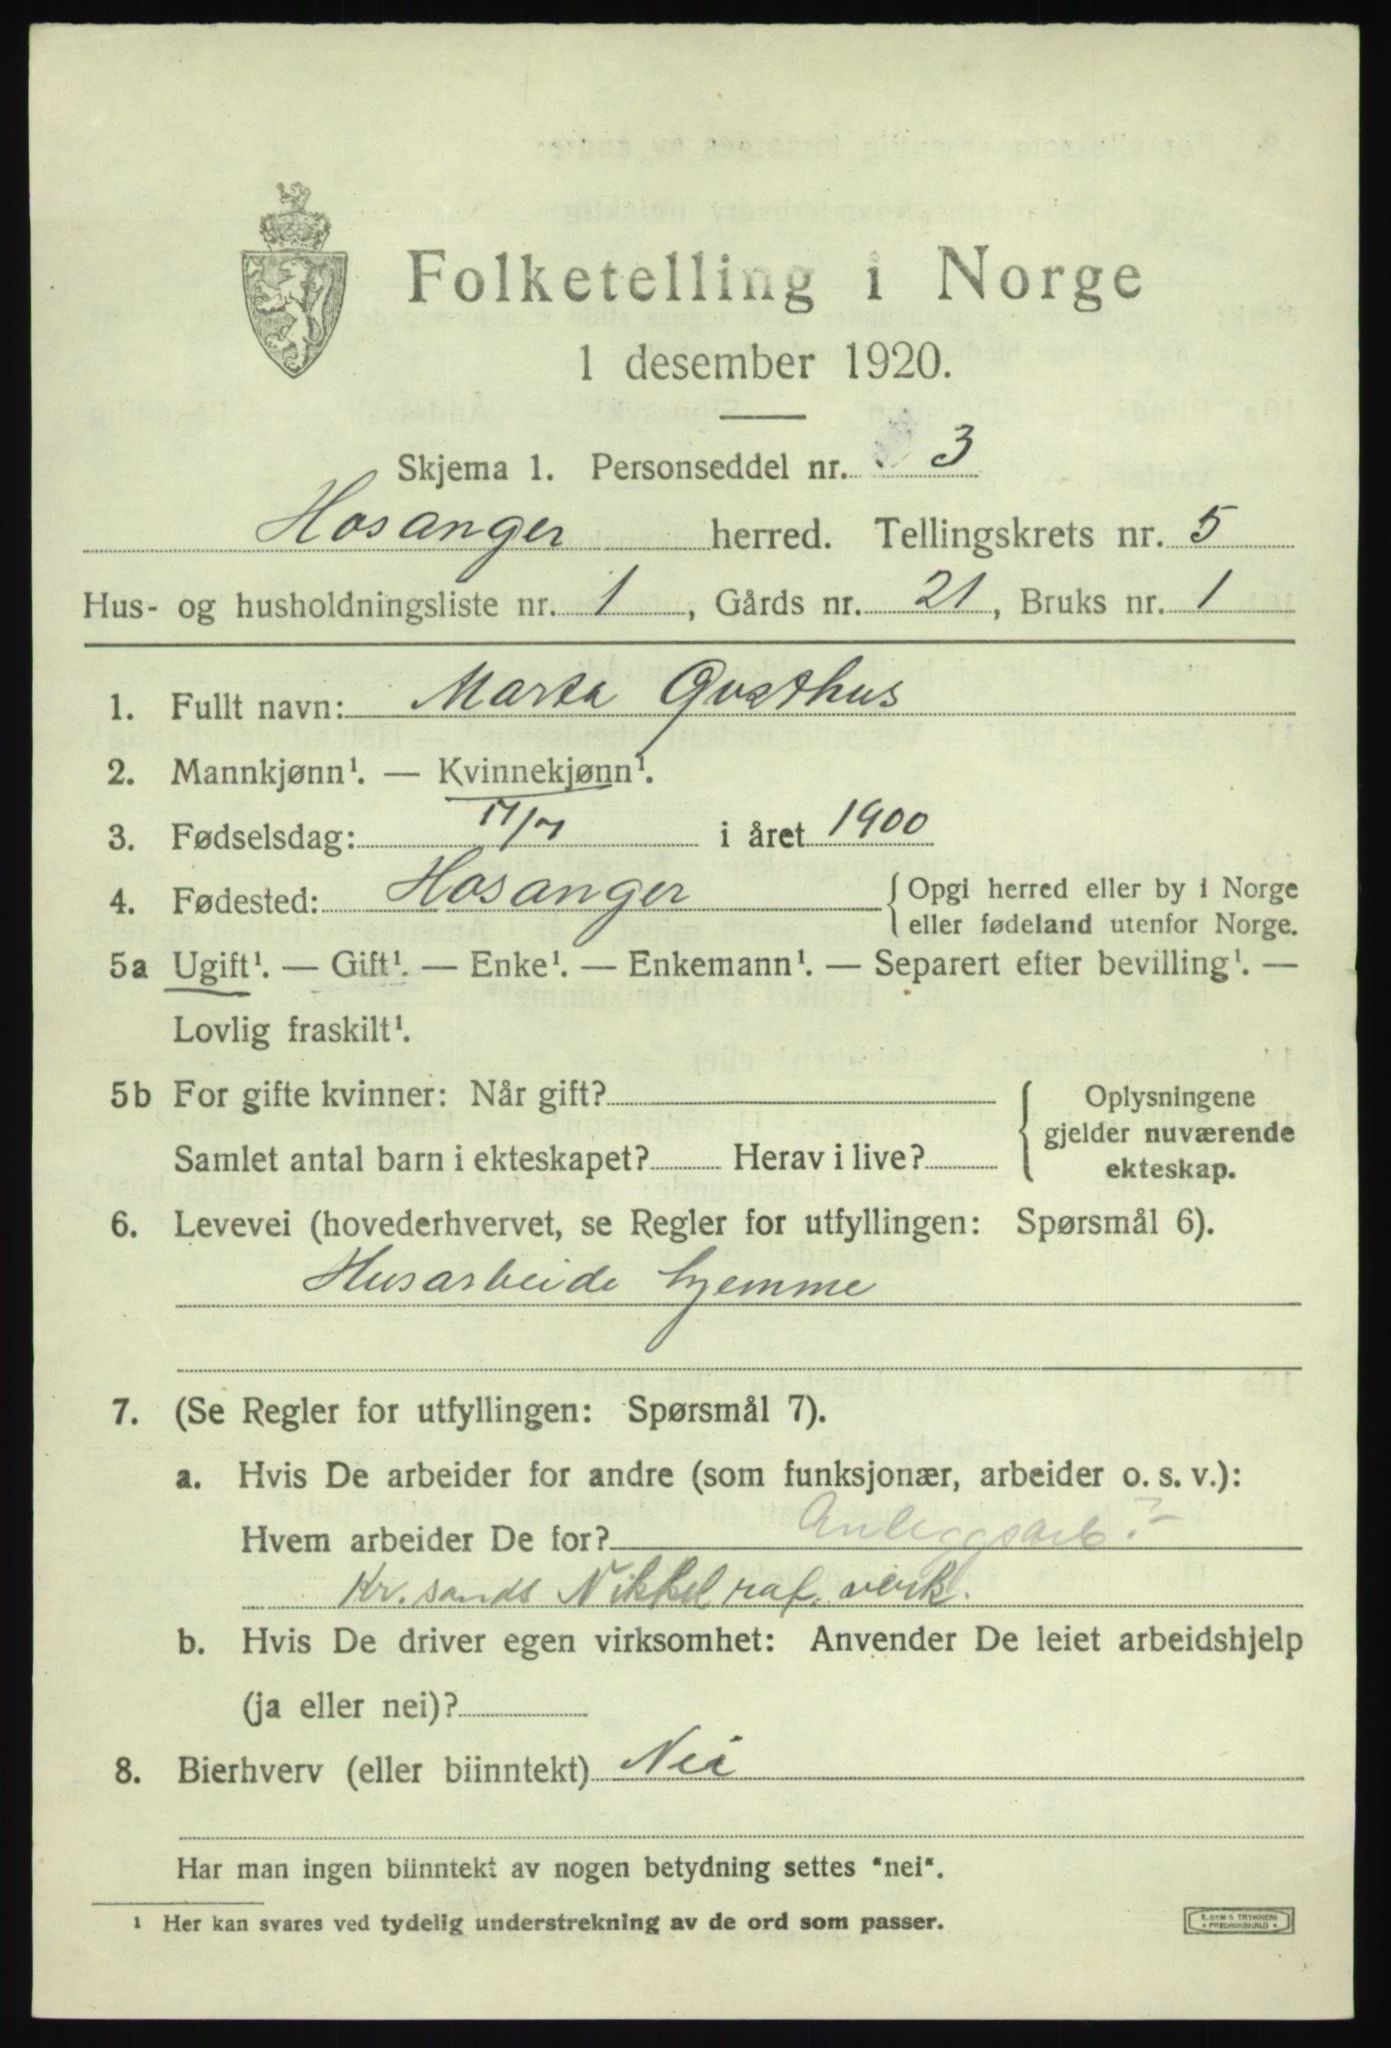 Folketelling i Norge
1 desember 1920.
Skjema 1. Personseddel nr. 3
Hosanger herred. Tellingskrets nr. 5
Hus- og husholdningsliste nr. 1, Gårds nr. 21, Bruks nr. 1
1. Fullt navn: Marta Qvsthus
2. Mannkjønn¹. — Kvinnekjønn¹.
3. Fødselsdag: 17/7 i året 1900
4. Fødested: Hosanger { Opgi herred eller by i Norge
eller fødeland utenfor Norge.
5a Ugift¹. — Gift¹. — Enke¹. — Enkemann¹. — Separert efter bevilling¹. —
Lovlig fraskilt¹.
5b For gifte kvinner: Når gift? { Oplysningene
gjelder nuværende
Samlet antal barn i ekteskapet? Herav i live? ekteskap.
6. Levevei (hovederhvervet, se Regler for utfyllingen: Spørsmål 6).
Husarbeide hjemme
7. (Se Regler for utfyllingen: Spørsmål 7).
a. Hvis De arbeider for andre (som funksjonær, arbeider o. s. v.):
Hvem arbeider De for? Anleggsarb. ?
Kr.sands Nikkel raf. verk.
b. Hvis De driver egen virksomhet: Anvender De leiet arbeidshjelp
(ja eller nei)?
8. Bierhverv (eller biinntekt) Nei
Har man ingen biinntekt av nogen betydning settes "nei".
¹ Her kan svares ved tydelig understrekning av de ord som passer.
TRYKKERI
FREDRIKSHALD